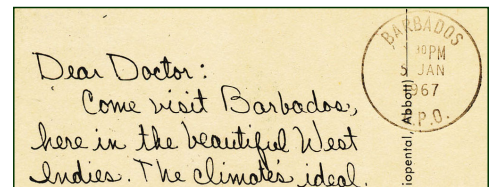 Dear Doctor:
Come visit Barbados,
here in the beautiful West
Indies. The climate's ideal.
BARBADOS
PM
JAN
967
P.O.
iopental, Abbott)